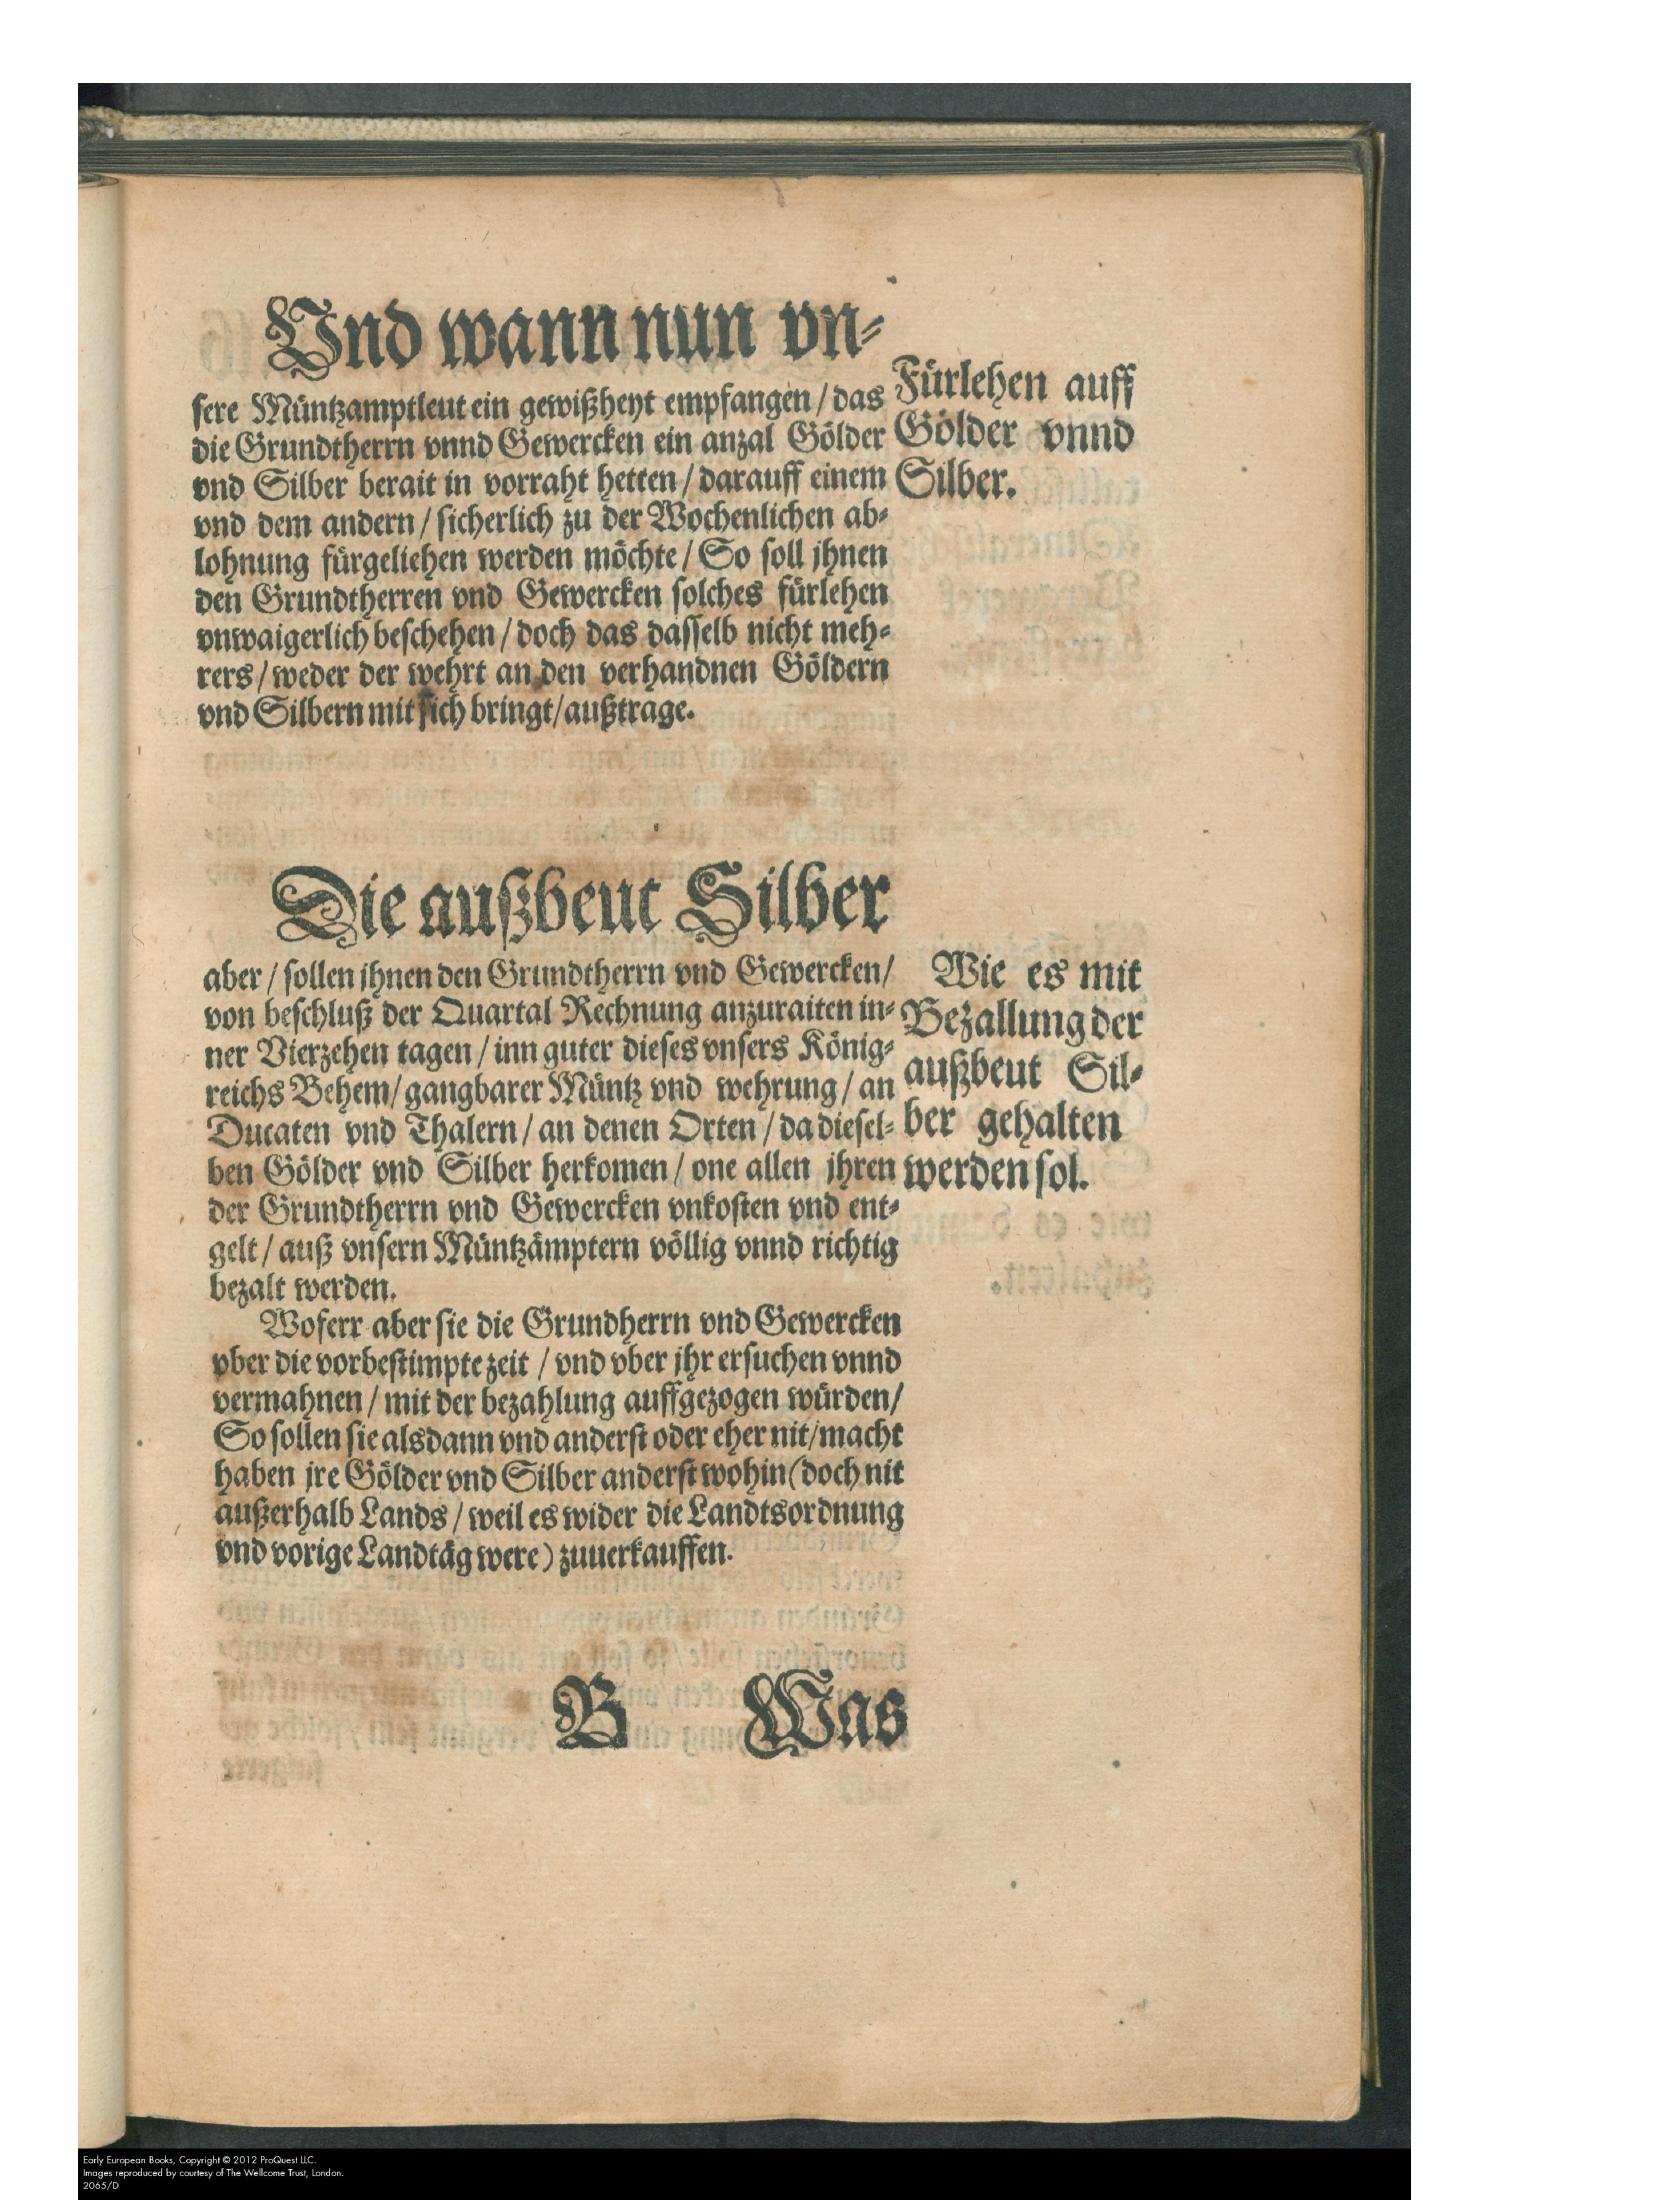 Vnd wann nun vn-
sere Müntzamptleut ein gewißheyt empfangen / das
die Grundtherrn vnnd Gewercken ein anzal Gölder
vnd Silber berait in vorraht hetten / darauff einem
vnd dem andern / sicherlich zu der Wochenlichen ab-
lohnung fürgeliehen werden möchte / So soll jhnen
den Grundtherren vnd Gewercken solches fürlehen
vnwaigerlich beschehen / doch das dasselb nicht meh-
rers / weder der wehrt an den verhandnen Göldern
vnd Silbern mit sich bringt / außtrage.
Fürlehen auff
Gölder vnnd
Silber.
Die außbeut Silber
aber / sollen jhnen den Grundtherrn vnd Gewercken /
von beschluß der Quartal Rechnung anzuraiten in-
ner Vierzehen tagen / inn guter dieses vnsers König-
reichs Behem / gangbarer Müntz vnd wehrung / an
Ducaten vnd Thalern / an denen Orten / da diesel-
ben Gölder vnd Silber herkomen / one allen jhren
der Grundtherrn vnd Gewercken vnkosten vnd ent-
gelt / auß vnsern Müntzämptern völlig vnnd richtig
bezalt werden.
Wie es mit
Bezallung der
außbeut Sil-
ber gehalten
werden sol.
Woferr aber sie die Grundherrn vnd Gewercken
vber die vorbestimpte zeit / vnd vber jhr ersuchen vnnd
vermahnen / mit der bezahlung auffgezogen würden /
So sollen sie alsdann vnd anderst oder eher nit / macht
haben jre Gölder vnd Silber anderst wohin (doch nit
außerhalb Lands / weil es wider die Landtsordnung
vnd vorige Landtäg were) zuuerkauffen.
B Was
Early European Books, Copyright © 2012 ProQuest LLC.
Images reproduced by courtesy of The Wellcome Trust, London.
2065/D